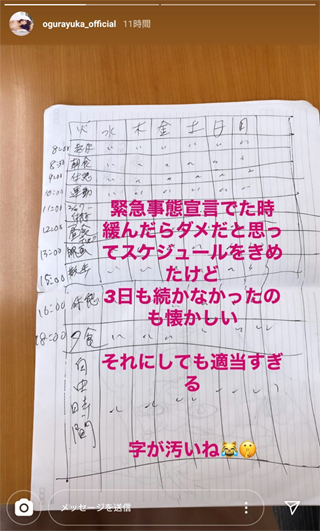 ogurayuka_official 11時間
火 水 木 金 土 日 月
8:00
8:30 朝食
9:00
10:00 運動
11:00
12:00 昼食
13:00
15:00 散歩
16:00 休憩
18:00 夕食
自由時間
緊急事態宣言でた時
緩んだらダメだと思っ
てスケジュールをきめ
たけど
3日も続かなかったの
も懐かしい
それにしても適当すぎ
る
字が汚いね😹🤫
メッセージを送信